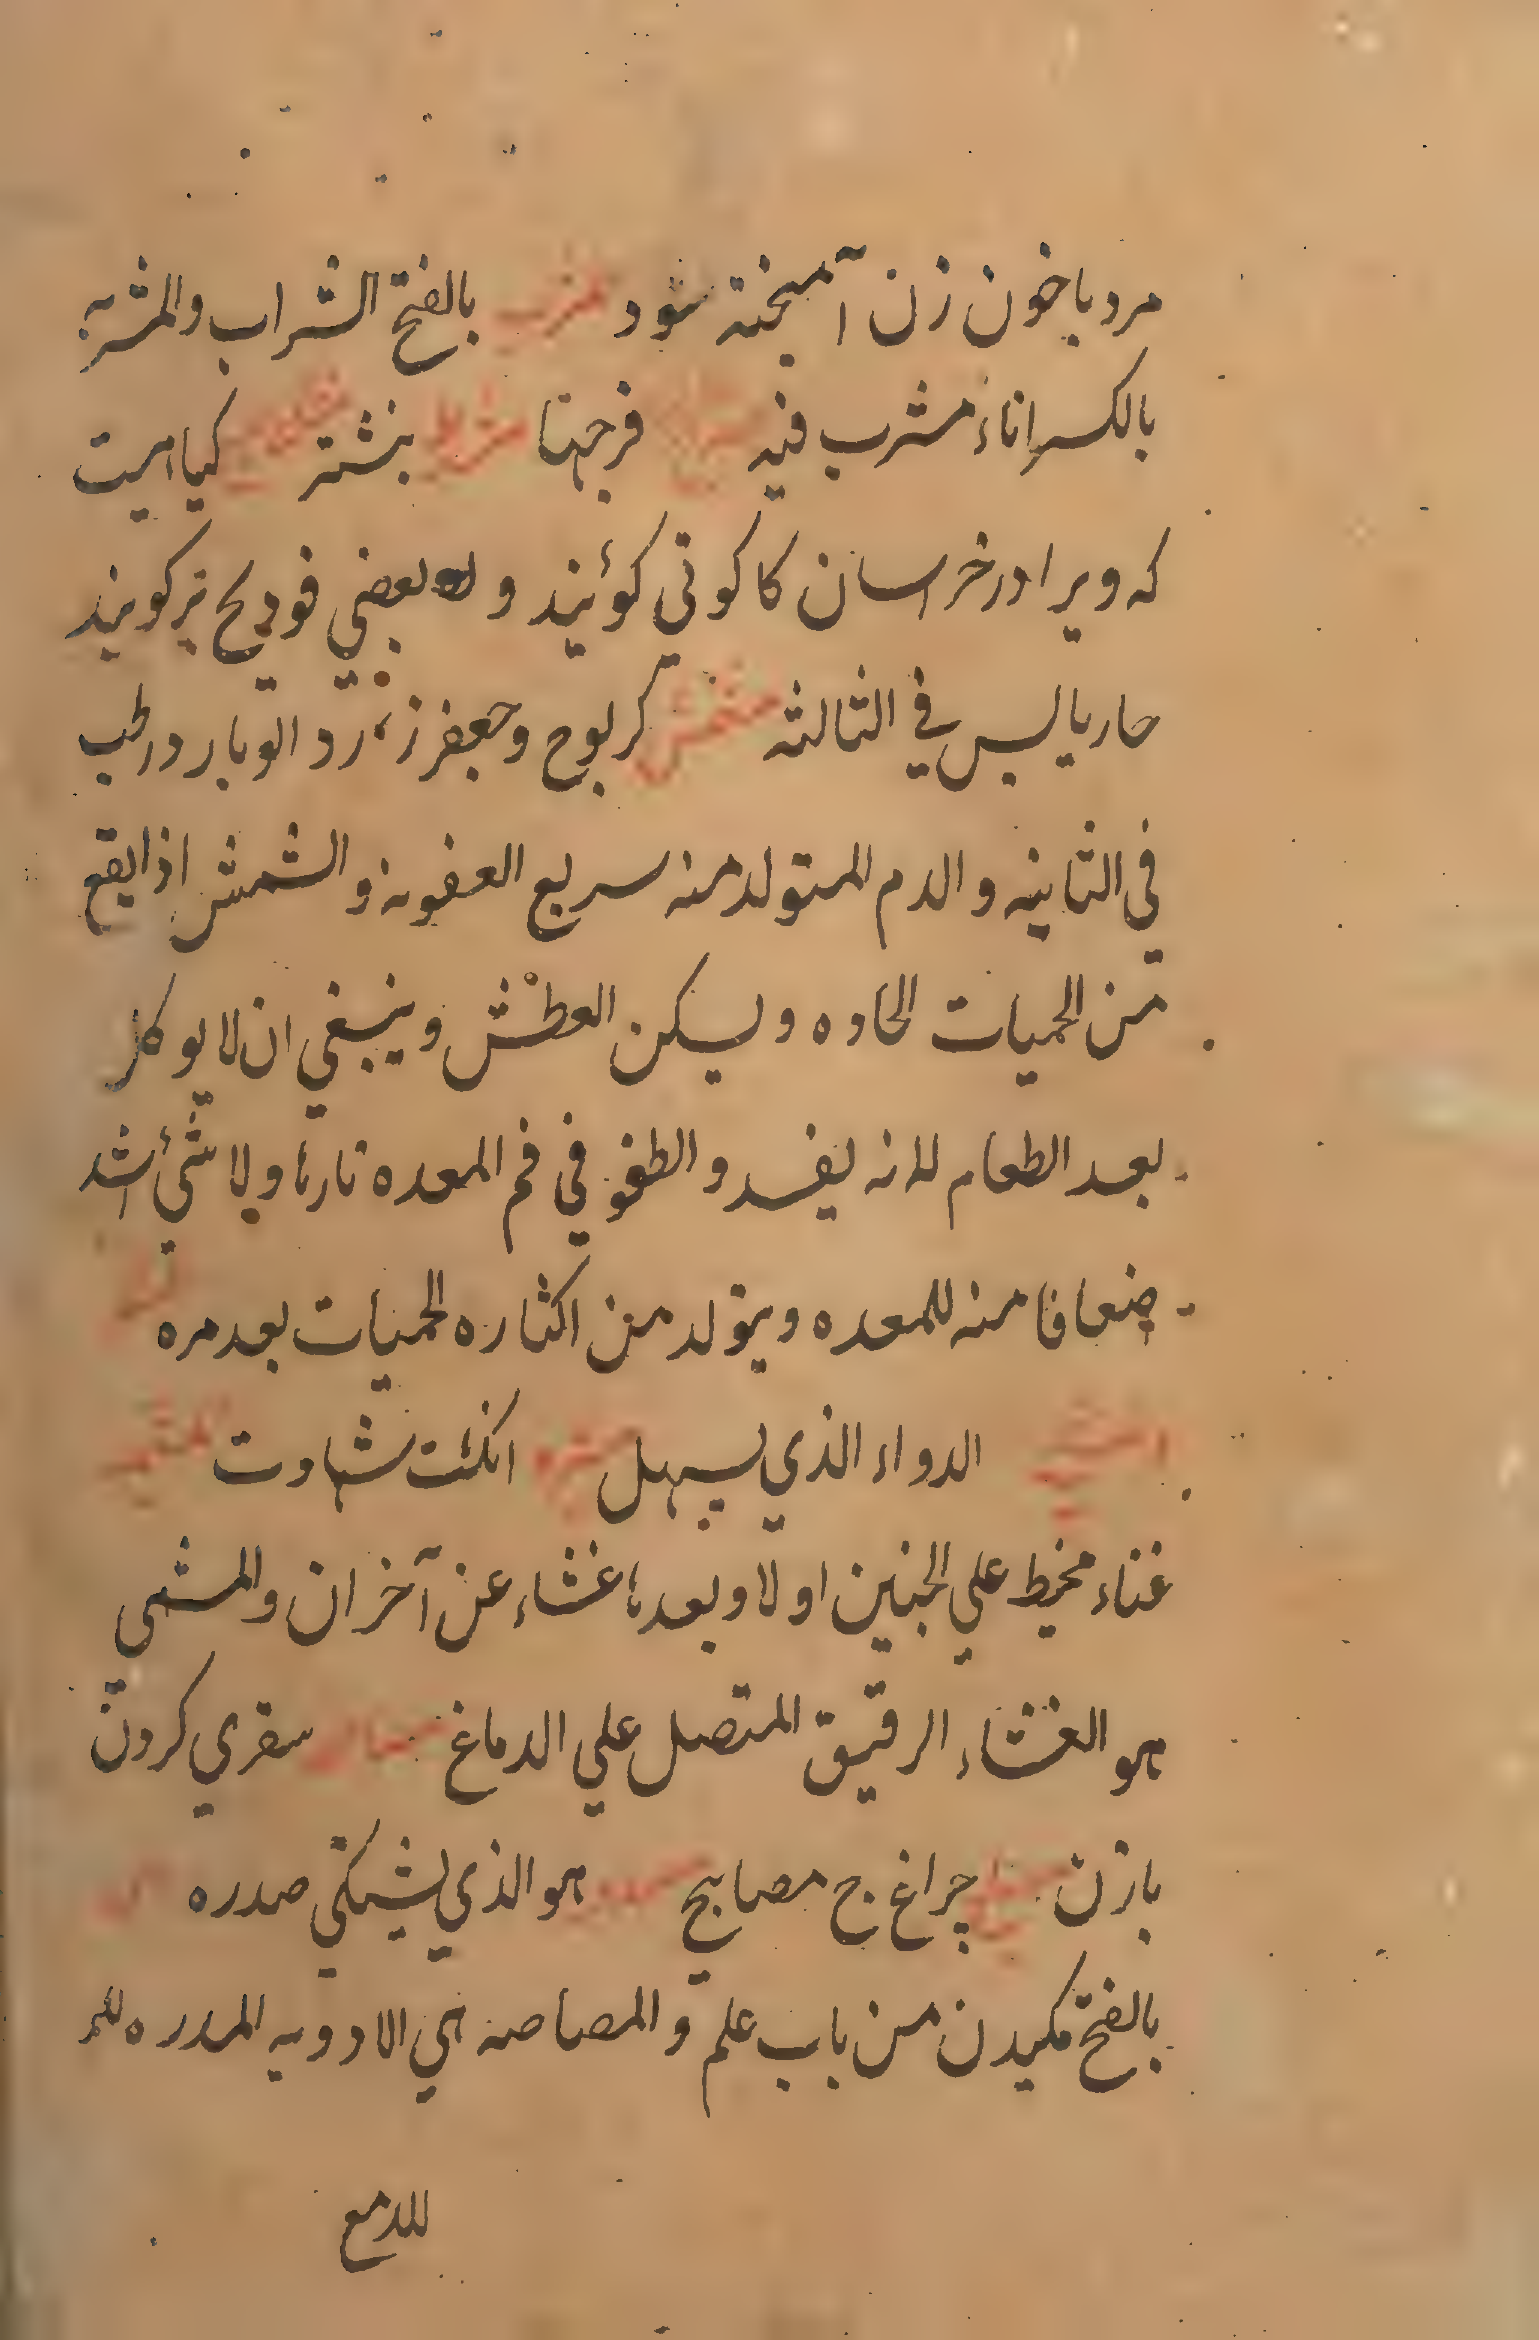 مرد با خون زن آمیخته شود مشرب بالفتح الشراب والمشربه
بالكسر اناء مشرب فیه فرجها بنشتر کیاهیست
که ویرا در خراسان کاکوتی کوئیند و بعضی فودیج تیز کویند
حار یابس فی الثالثه مشمش کربوح وجعفر زرد الو بارد رطب
فی الثانیه و الدم المتولد منه سریع العفونه و الشمش اذا یقع
من الحمیات الحاده و یسکن العطش و ینبغی ان لا یوکل
بعد الطعام لانه یفسد و الطفو فی فم المعده نارها ولا شئ اشد
ضعافا منه للمعده و یتولد من اکثاره الحمیات بعد مره
الدواء الذی یسهل انکشت شهادت
غناء محیط علی الجنین اولا و بعدها غشاء عن آخران والمشمی
هو الغشاء الرقیق المتصل علی الدماغ سفری کردن
بازن مصباح چراغ ج مصابیح مصدور هو الذی یشتکی صدره
بالفتح مکیدن من باب علم و المصاصه هی الادویه المدره للد
للدمع